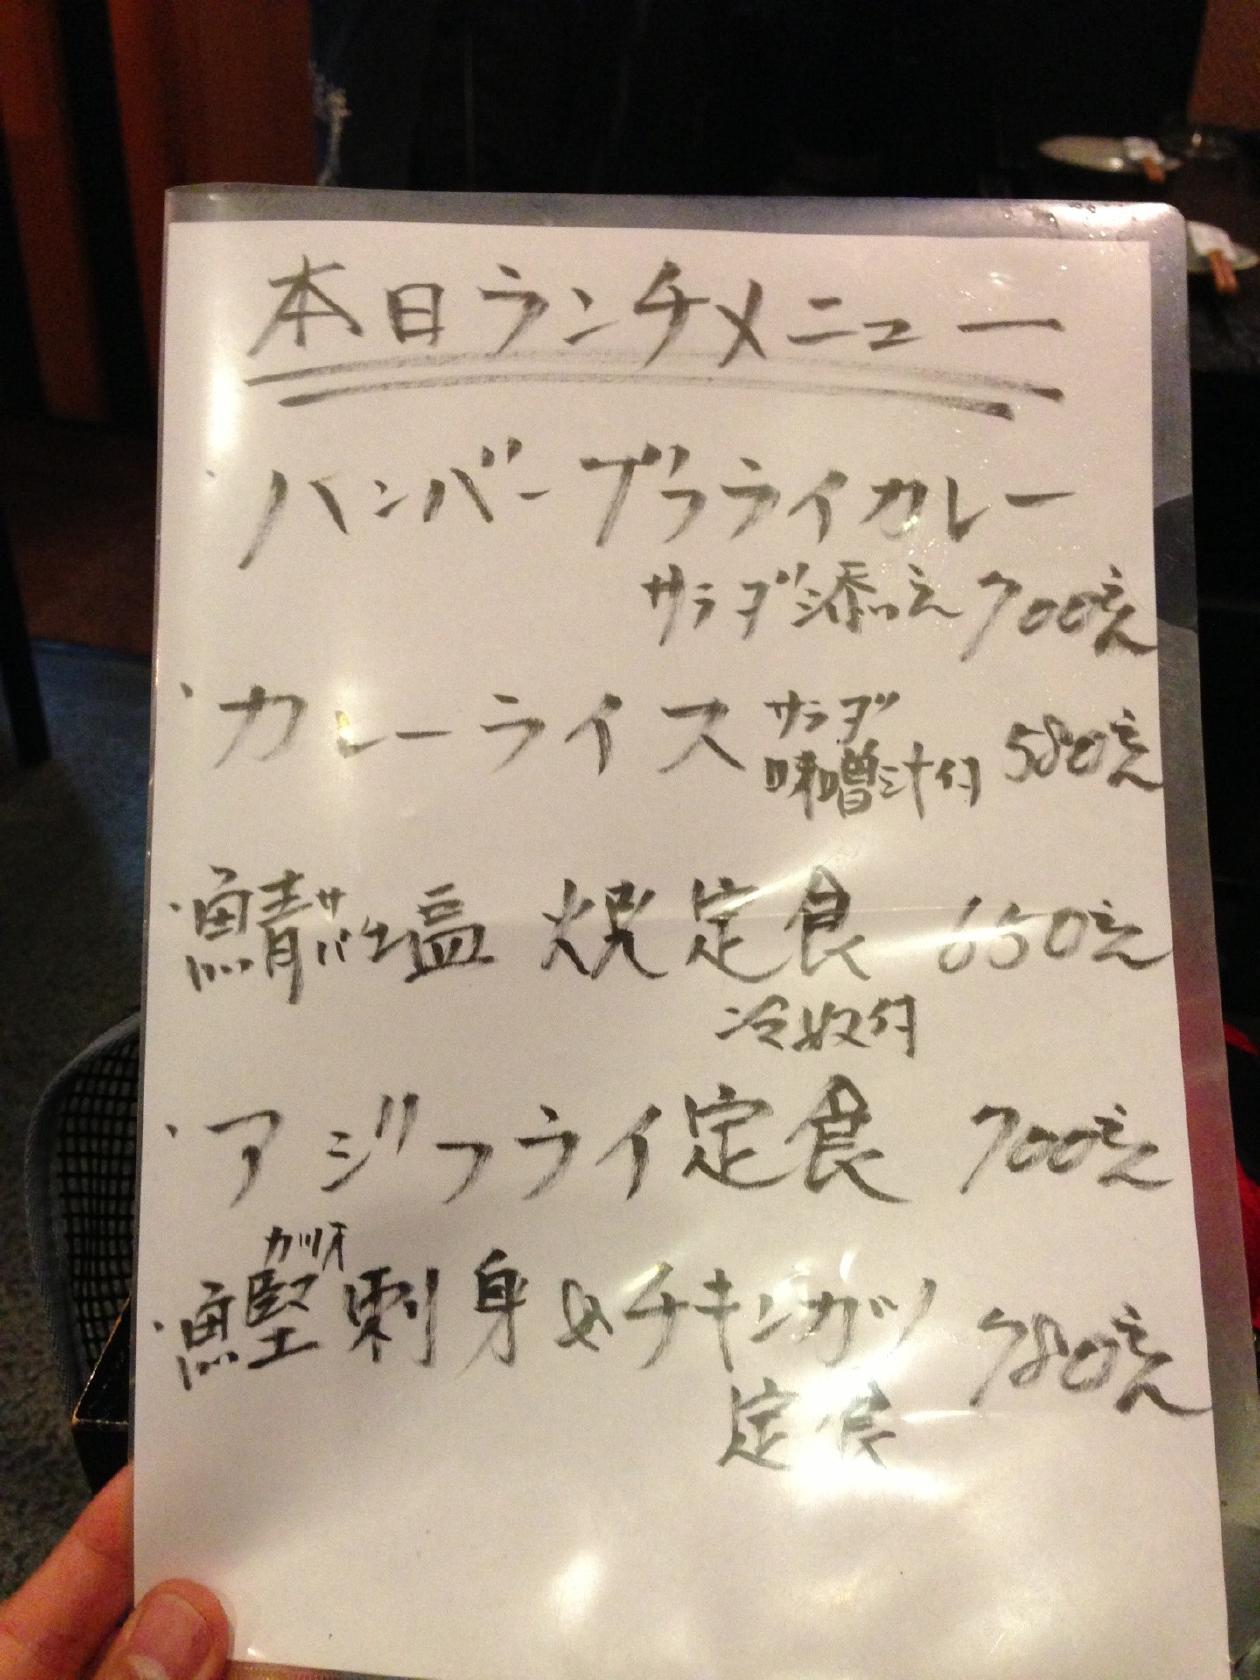 本日ランチメニュー
・ハンバーグフライカレー
サラダ添え 700えん
・カレーライス サラダ 味噌汁付 580えん
・鯖サバ塩 焼定食 650えん
冷奴付
・アジフライ定食 700えん
カツオ
・鰹刺身&チキンカツ 780えん
定食